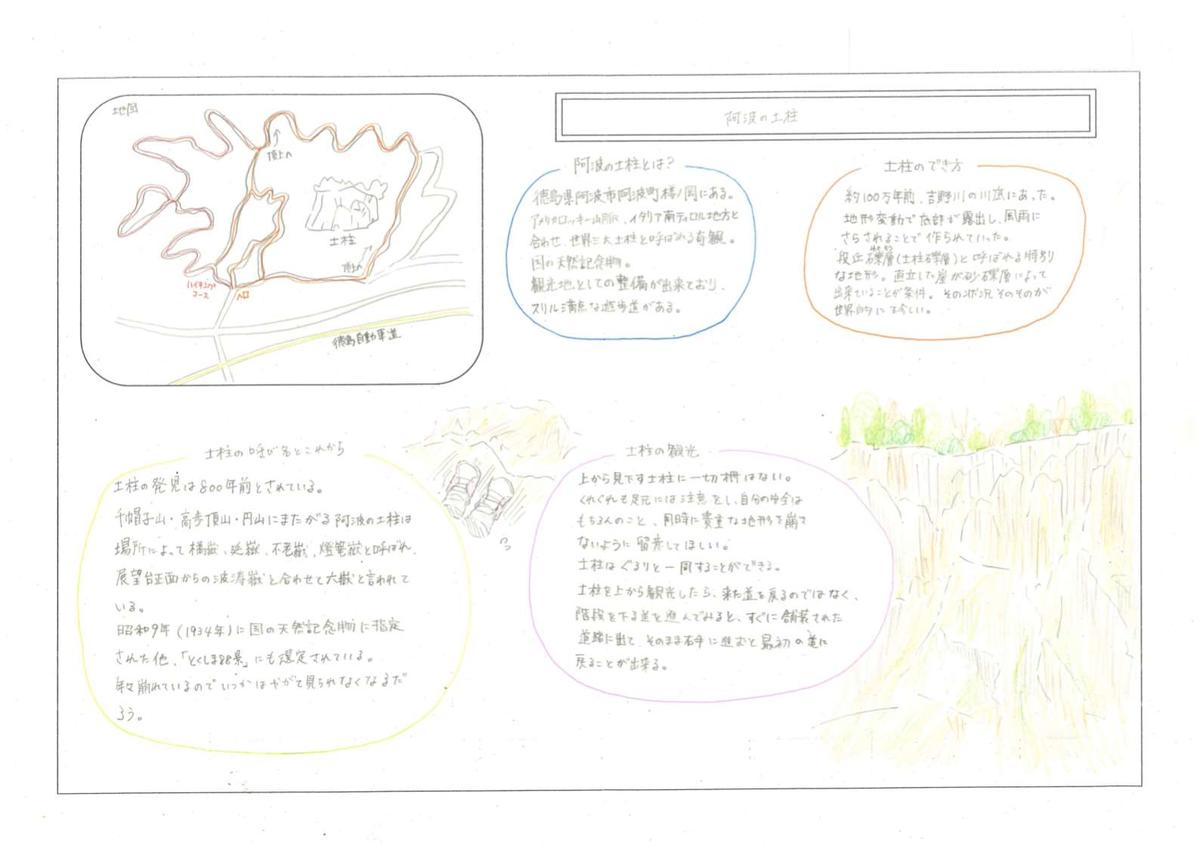 地図
頂上へ
土柱
頂上へ
ハイキング
コース
入口
徳島自動車道
阿波の土柱
阿波の土柱とは?
徳島県阿波市阿波町桜ノ岡にある。
アメリカロッキー山脈、イタリア南ティロル地方と
合わせ、世界三大土柱と呼ばれる奇観。
国の天然記念物。
観光地としての整備が出来ており、
スリル満点な遊歩道がある。
土柱のでき方
約100万年前、吉野川の川底にあった。
地形変動で底部が露出し、風雨に
さらされることで作られていった。
段丘礫層(土柱礫層)と呼ばれる特別
な地形。直立した崖が砂礫層によって
出来ていることが条件。その状況そのものが
世界的にも珍しい。
土柱の呼び名とこれから
土柱の発見は800年前とされている。
千帽子山・高歩頂山・円山にまたがる阿波の土柱は
場所によって橘嶽、筵嶽、不老嶽、燈篭嶽と呼ばれ、
展望台正面からの波濤嶽と合わせて六嶽と言われて
いる。
昭和9年(1934年)に国の天然記念物に指定
された他、「とくしま88景」にも選定されている。
年々崩れているのでいつかはやがて見られなくなるだ
ろう。
土柱の観光
上から見下す土柱に一切柵はない。
くれぐれも足元には注意をし、自分の安全は
もちろんのこと、同時に貴重な地形を崩さ
ないように留意してほしい。
土柱はぐるりと一周することができる。
土柱を上から観光したら、来た道を戻るのではなく、
階段を下る道を進んでみると、すぐに舗装された
道路に出て、そのまま右手に進むと最初の道に
戻ることが出来る。